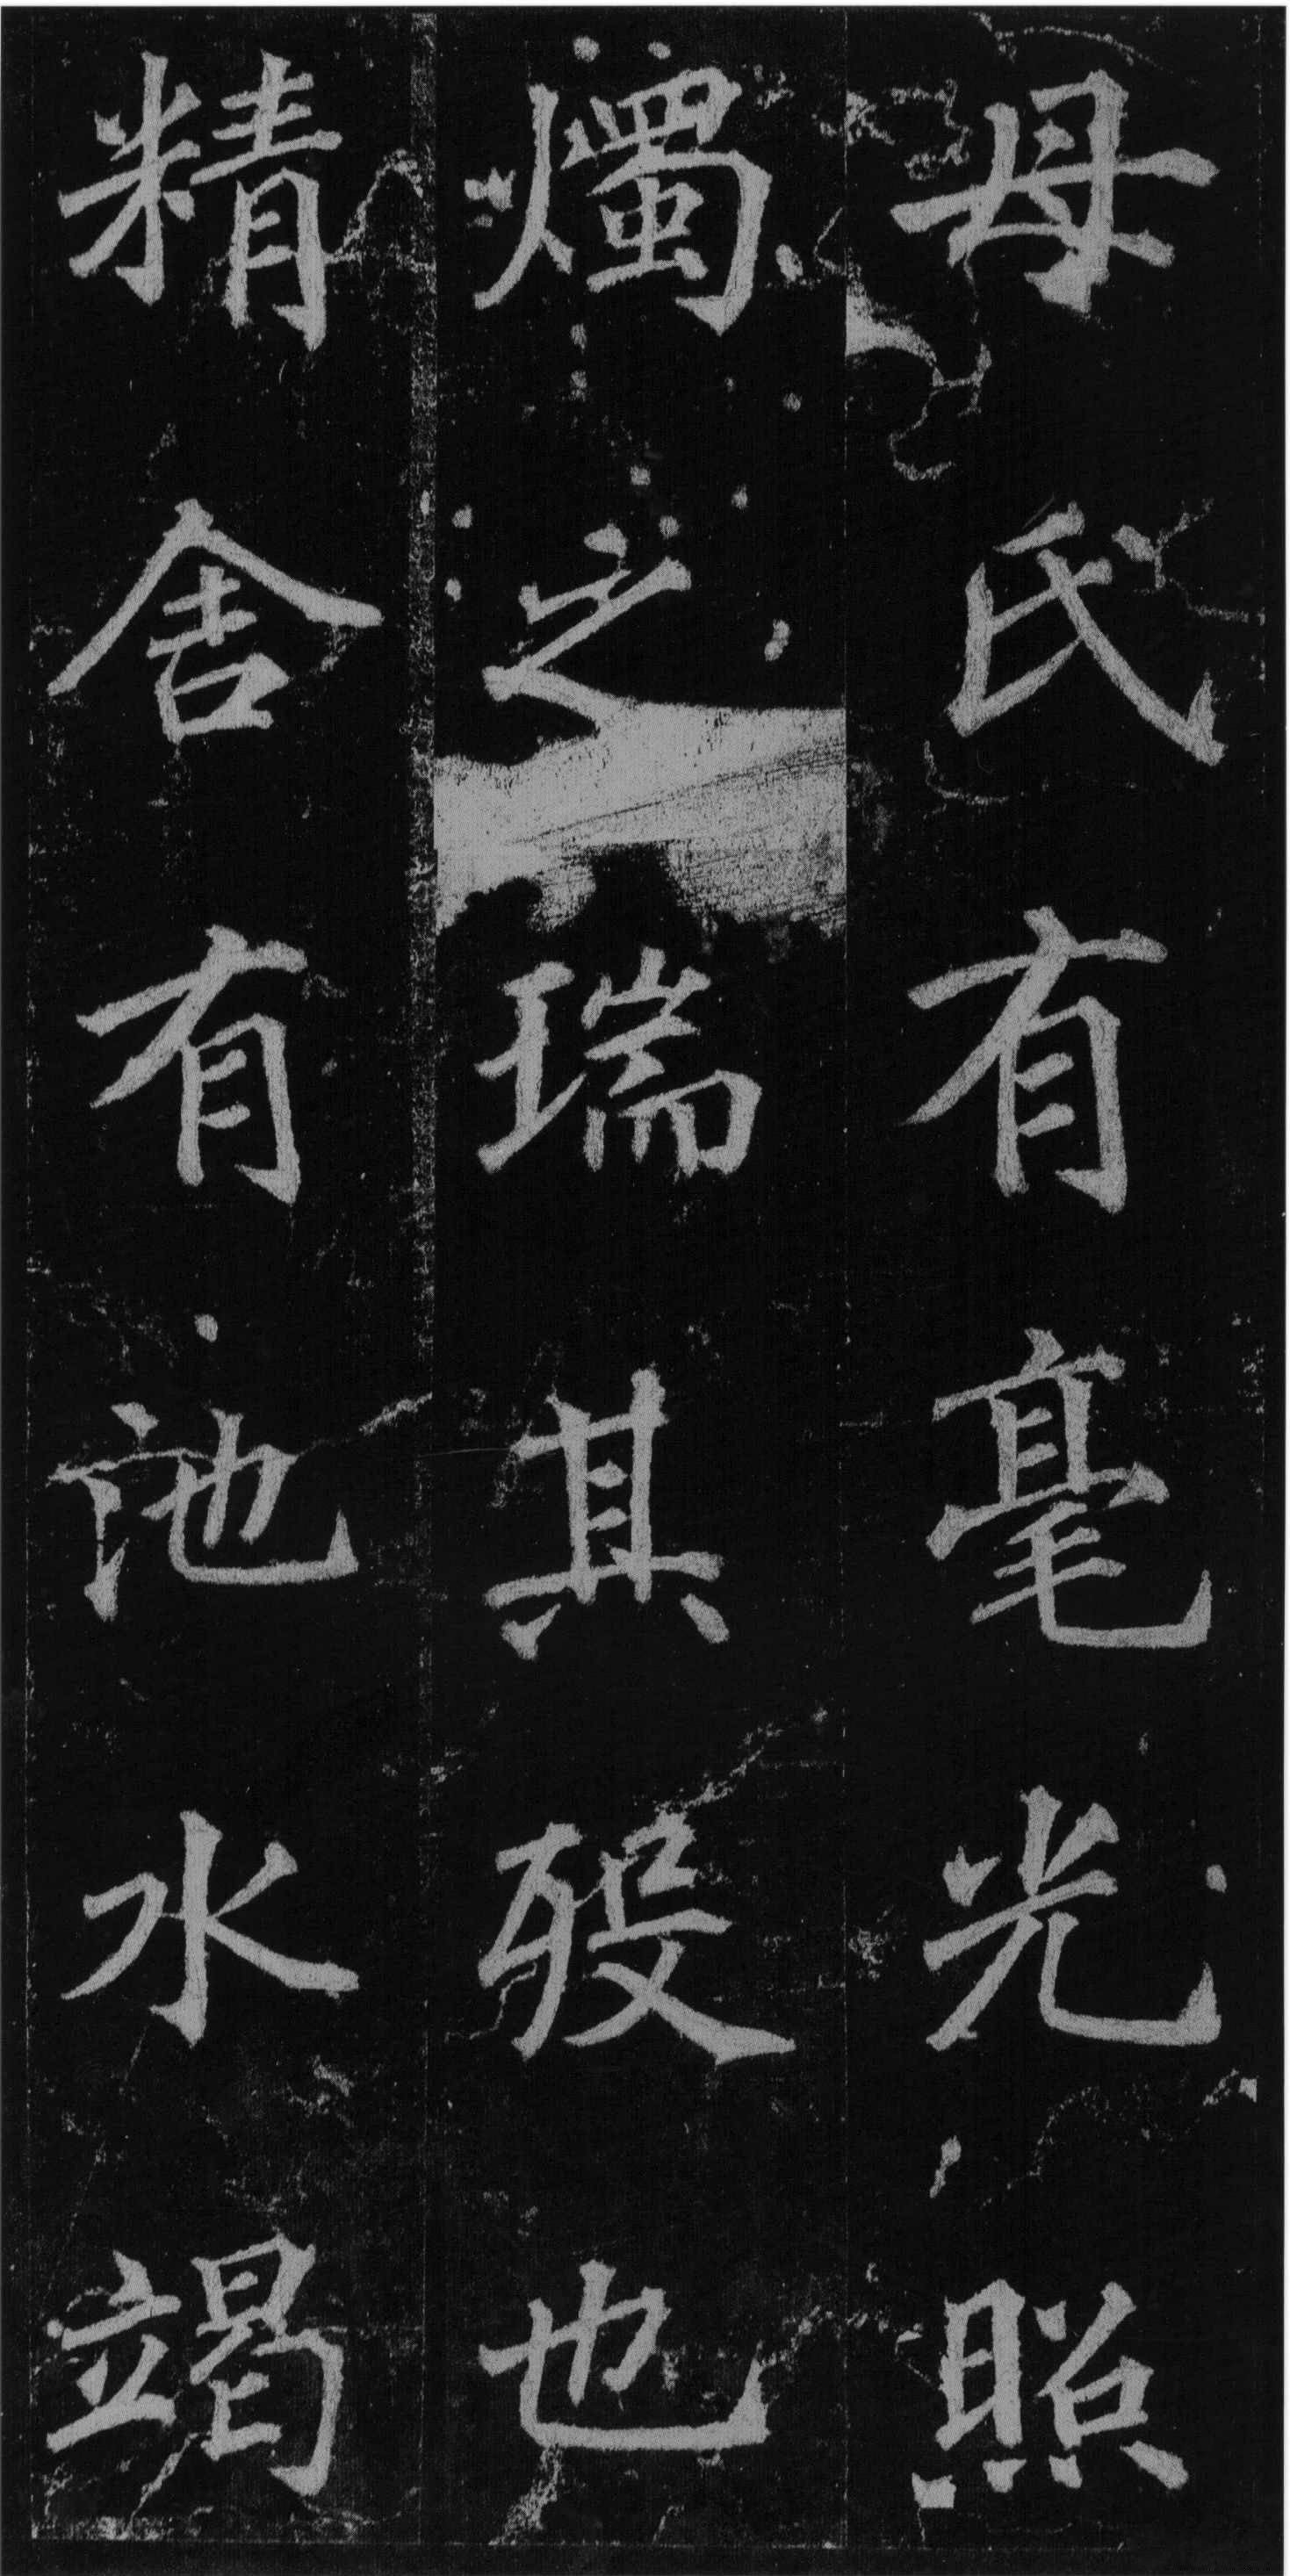 母氏有毫光照
燭之瑞其殁也
精舍有池水竭